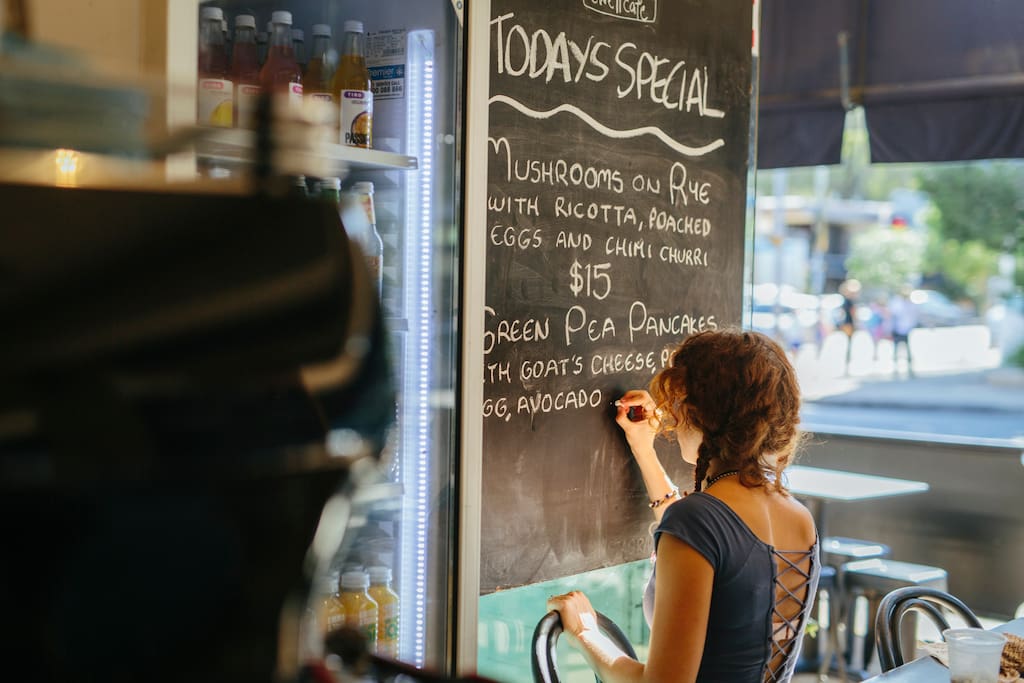 TODAYS SPECIAL
MUSHROOMS ON RYE
WITH RICOTTA, POACHED
EGGS AND CHIMI CHURRI
$15
GREEN PEA PANCAKES
TH GOAT'S CHEESE, P
GG, AVOCADO
TIRO
PASS